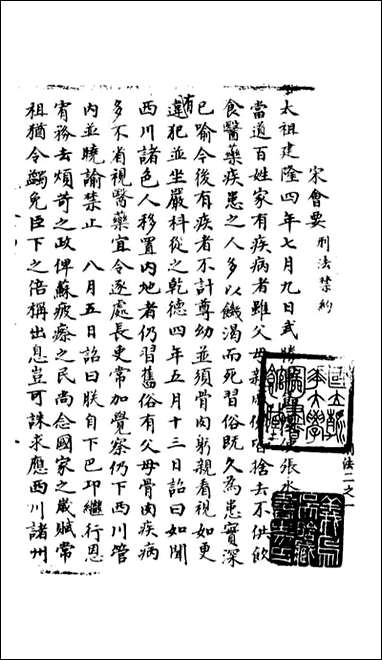 法二之一
宋會要 刑法禁約
太祖建隆四年七月九日武勝張永
當道百姓家有疾病者雖父母親戚例皆捨去不供飲
食醫藥疾患之人多以饑渴而死習俗既久為患實深
已喻今後有疾者不計尊幼並須骨肉躬親看視如更
有違犯並坐嚴科從之乾德四年五月十三日詔曰如聞
西川諸色人移置内地者仍習舊俗有父母骨肉疾病
多不省視醫藥宜令逐處長吏常加覺察仍下西川管
内並曉諭禁止 八月五日詔曰朕自下巴邛繼行恩
宥務去煩苛之政俾蘇疲瘵之民尚念國家之歲賦常
祖猶令蠲免臣下之倍稱出息豈可誅求應西川諸州